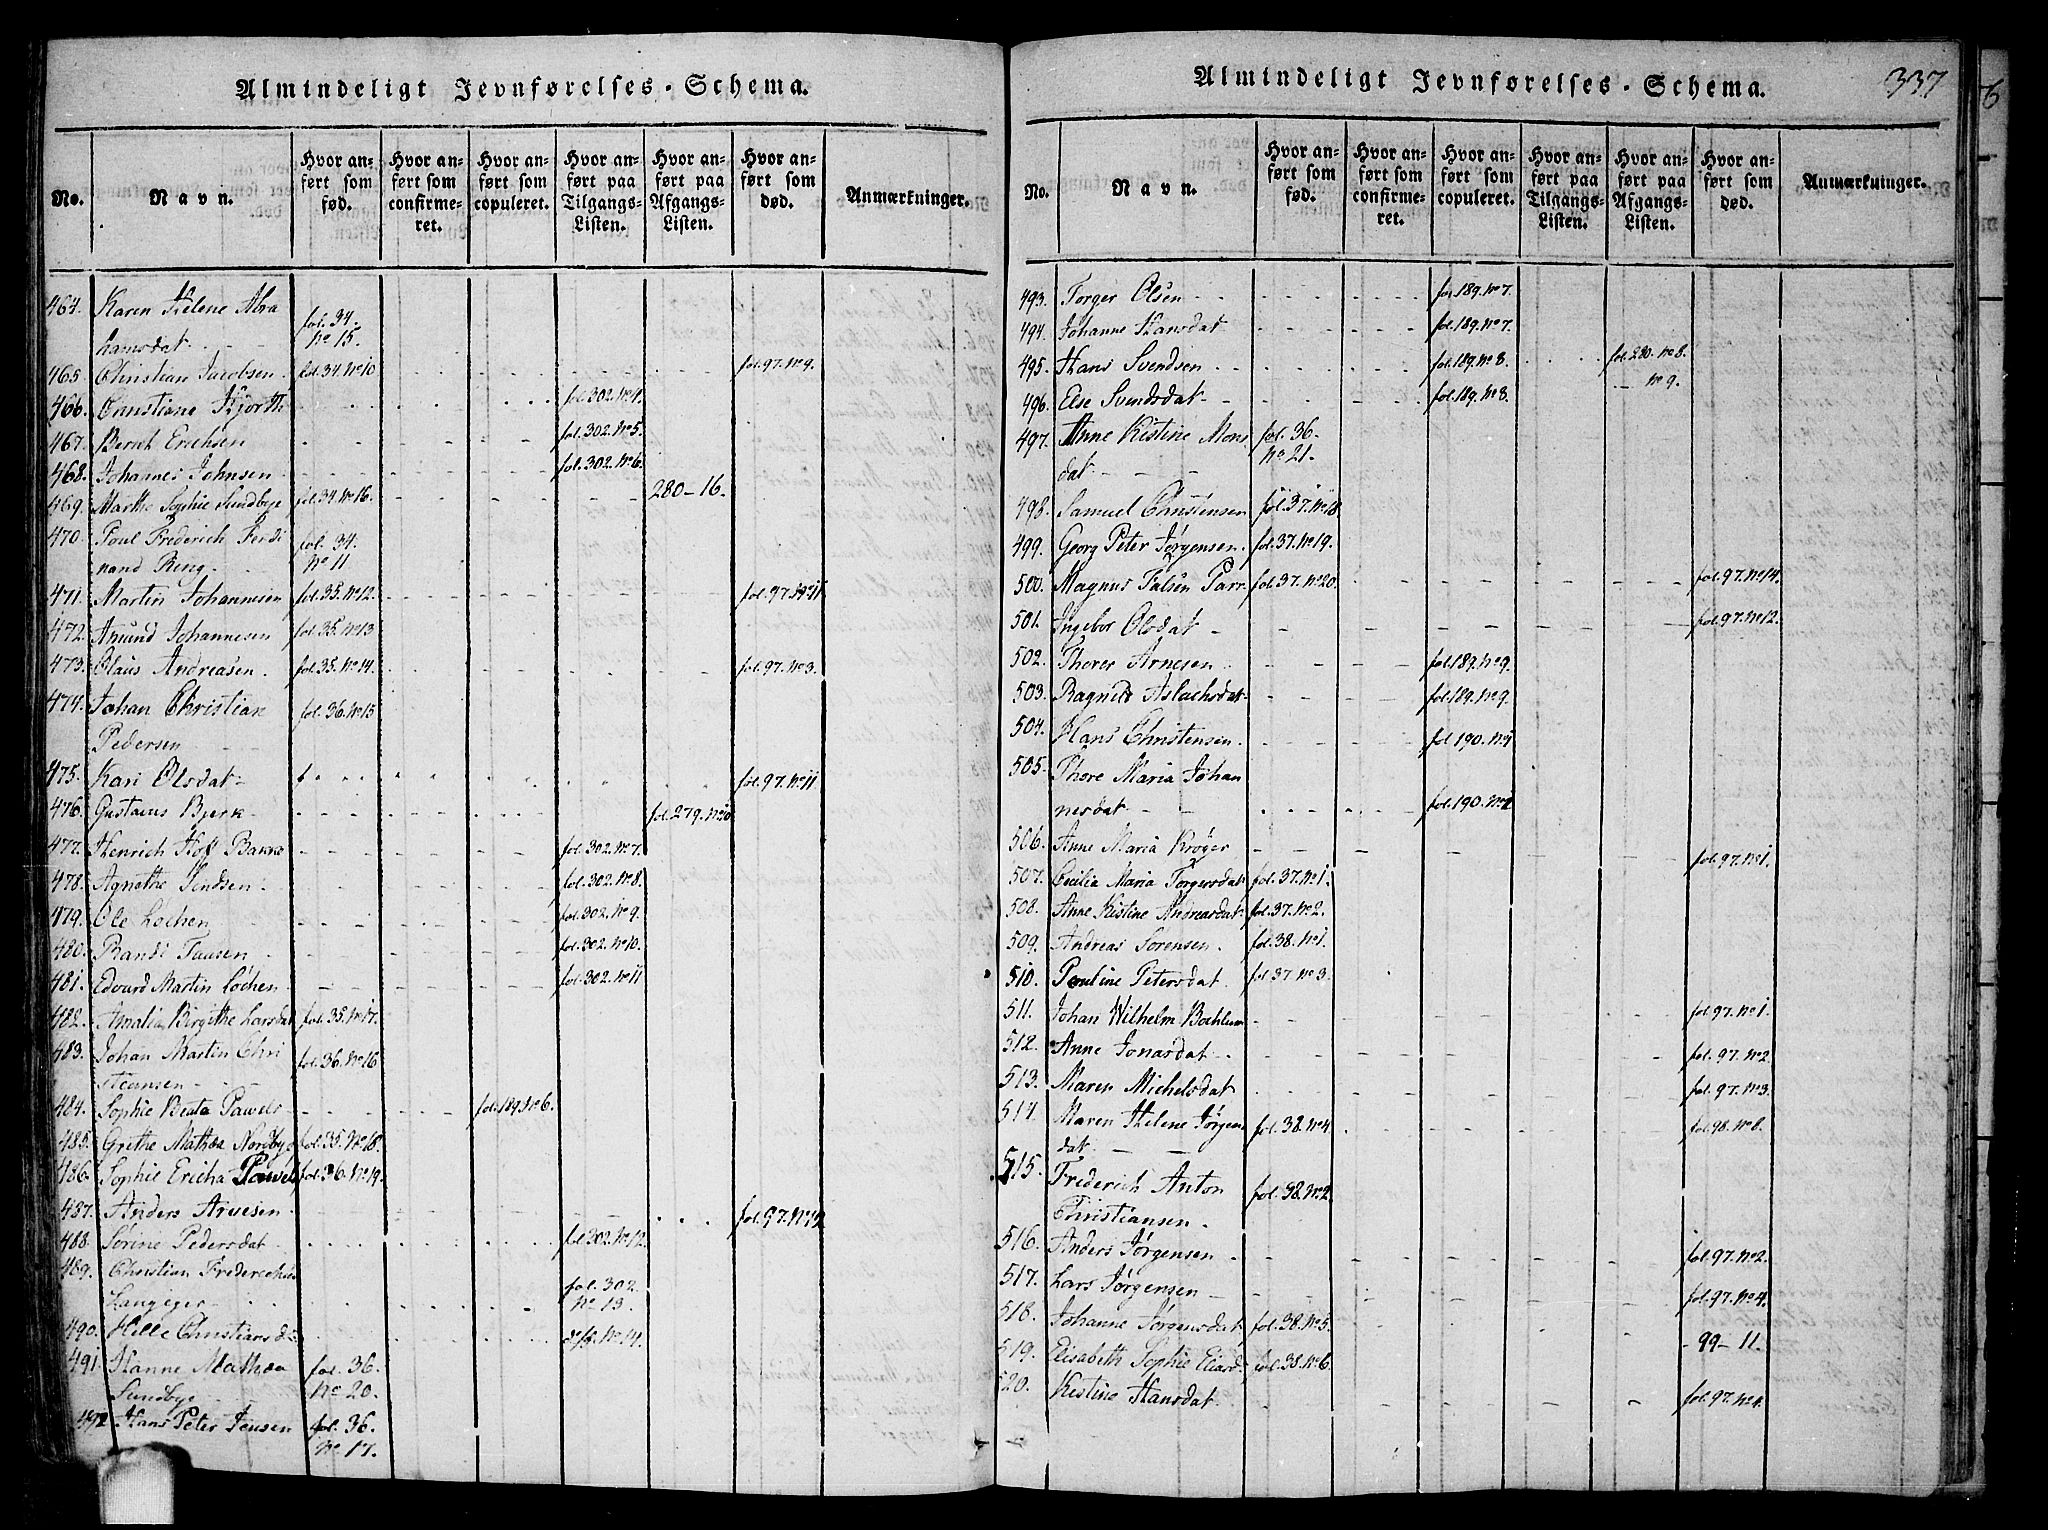 Almindeligt Jevnførelses-Schema.
No.
Navn.
Hvor an-
ført som
fød.
Hvor an-
ført som
confirme-
ret.
Hvor an-
ført som
copuleret.
Hvor an-
ført paa
Tilgangs-
Listen.
Hvor an-
ført paa
Afgangs-
Listen.
Hvor an-
ført som
død.
Anmærkninger.
464. Karen Helene Abra fol. 34.
hamsdat. No 15.
465. Christian Jacobsen. fol. 34. No 10 fol. 97. No 9.
466. Christiane Hjorth fol. 302. No 4.
467. Bernt Erichsen fol. 302. No 5.
468. Johannes Johnsen. fol. 302. No 6.
469. Marthe Sophie Sundbye fol. 34. No 16. 280-16.
470. Poul Frederich Ferdi fol. 34.
nand Ring. No 11
471. Martin Johannesen fol. 35. No 12. fol. 97. No 11
472. Amund Johannesen fol. 35. No 13
473. Claus Andreasen. fol. 35. No 14. fol. 97. No 3.
474. Johan Christian fol. 36. No 15
Pedersen
475. Kari Olsdat fol. 97. No 11
476. Gustavus Bjerk fol. 279. No 10
477. Henrich Hoff Bakke fol. 302. No 7.
478. Agnethe fol. 302. No 8.
479. Ole Løchen fol. 302. No 9.
480. Randi fol. 302. No 10.
481. Edvard Martin Løchen fol. 302. No 11
482. Amalia Birgithe Larsdat fol. 35. No 17.
483. Johan Martin Chri fol. 36. No 16
stiansen
484. Sophie Beata Pawels fol. 189. No 6.
485. Grethe Mathea Nordbye fol. 35. No 18.
486. Sophie Ericha Pawels fol. 36. No 19.
487. Anders Arvesen fol. 97. No
488. Sørine Pedersdat fol. 302. No 12.
489. Christian Frederichsen fol. 302.
No 13.
490. Helle Christiansd. No 14.
491. Hanne Mathea fol. 36.
Sundbye No 20.
492 Hans Peter Jensen fol. 36.
No 17.
Almindeligt Jevnførelses-Schema. 337
No.
Navn.
Hvor an-
ført som
fød.
Hvor an-
ført som
confirme-
ret.
Hvor an-
ført som
copuleret.
Hvor an-
ført paa
Tilgangs-
Listen.
Hvor an-
ført paa
Afgangs-
Listen.
Hvor an-
ført som
død.
Anmærkninger.
493. Torger Olsen fol. 189. No 7.
494. Johanne Hansdat fol. 189. No 7.
495. Hans Svendsen fol. 189. No 8. fol. 280. No 8.
496. Else Svendsdat fol. 189. No 8. No 9.
497. Anne Kistine Mons fol. 36.
dat No 21.
498. Samuel Christensen fol. 37. No 18.
499. Georg Peter Jørgensen. fol. 37. No 19.
500. Magnus Falsen Parr fol. 37. No 20. fol. 97. No 14.
501. Ingebor Olsdat fol. 97. No 12.
502. Thorer Arnesen fol. 189. No 9.
503. Ragnild Aslachsdat fol. 189. No 9.
504. Hans Christensen. fol. 190. No 1
505. Thore Maria Johan
nesdat fol. 190. No 1
506. Anne Maria Krøger fol. 97. No 1.
507. Cecilia Maria Torgersdat fol. 37. No 1.
508. Anne Kistine Andreasdat. fol. 37. No 2.
509. Andreas Sørensen. fol. 38. No 1.
510. Pauline Petersdat. fol. 37 No 3.
511. Johan Wilhelm fol. 97. No 1.
512. Anne Jonasdat. fol. 97. No 2.
513. Maren Michelsdat fol. 97. No 3.
514. Maren Helene Jørgens fol. 38. No 4. fol. 98. No 8.
dat.
515. Frederich Anton fol. 38. No 2.
Christiansen.
516. Anders Jørgensen fol. 97. No 2.
517. Lars Jørgensen fol. 97. No 4.
518. Johanne Jørgensdat fol. 38. No 5. 99-11.
519. Elisabeth Sophie Eliasd. fol. 38. No 6.
520. Kistine Hansdat fol. 97. No 4.